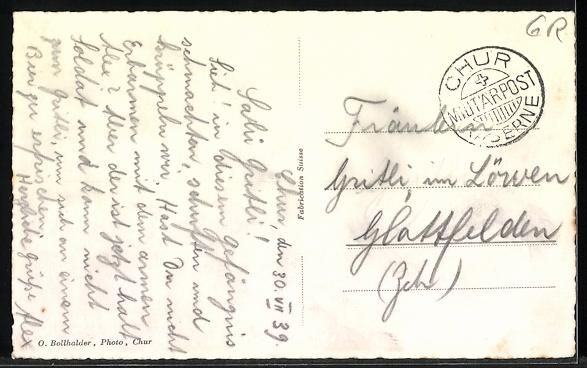 GR
CHUR
4
MILITÄRPOST
KASERNE
Chur, den 30. VII 39.
Sali Gritli!
Sieh! in diesen Gefängnis
schmachten, schuften und
krüppeln wir. Hast Du nicht
Erbarmen mit dem armen
Alex? Aber der ist jetzt halt
Soldat und kann nicht
zum Gritli, um sich an einem
Bier zu erfrischen.
Herzliche Grüße Alex
Fabrication Suisse
O. Bollhalder, Photo, Chur
Fräulein
Gritli im Löwen
Glattfelden
(Zch)